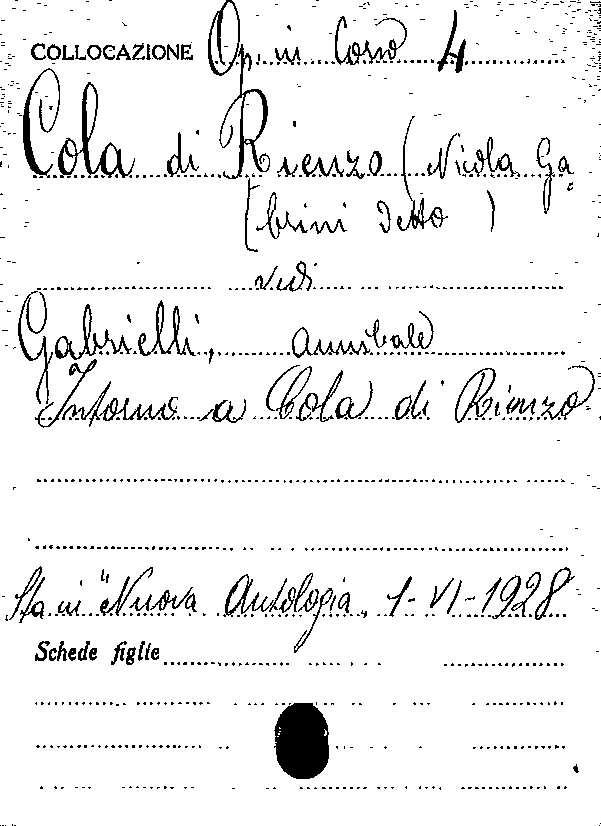 COLLOCAZIONE Op. in Corso 4
Cola di Rienzo (Nicola Ga-
brini detto )
vedi
Gabrielli, Annibale
Intorno a Cola di Rienzo
Sta in "Nuova Antologia, 1-VI-1928
Schede figlie